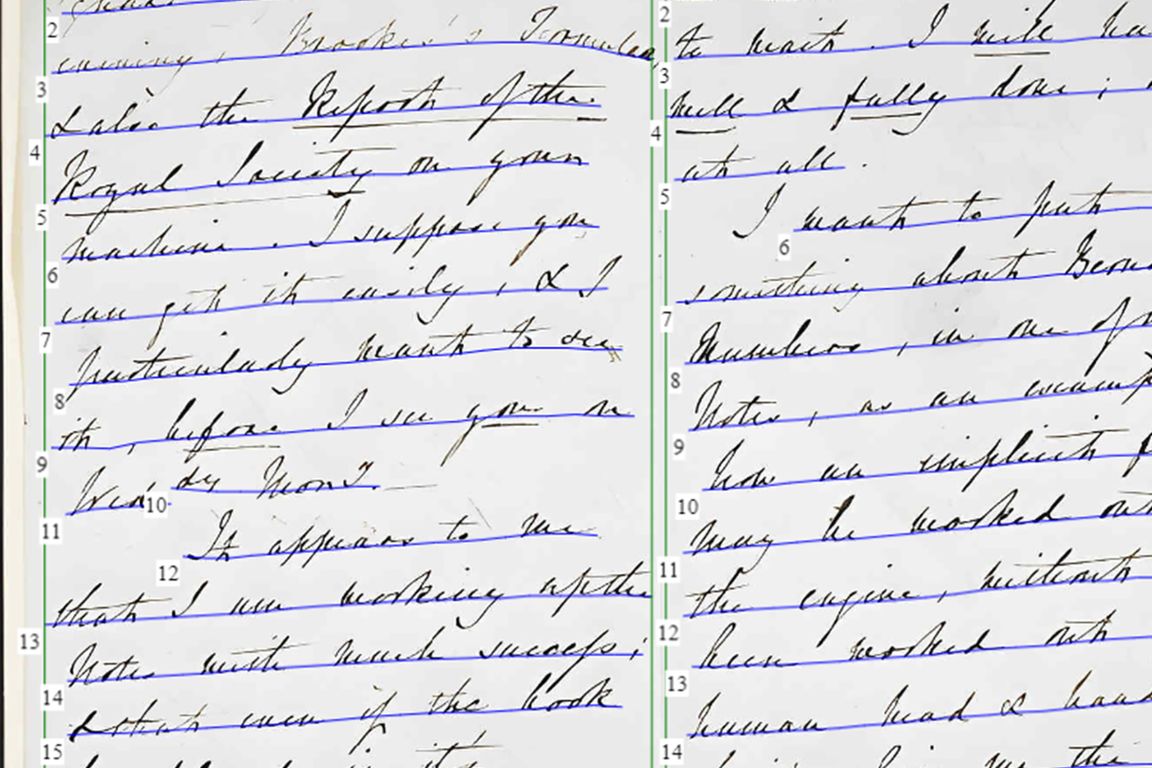 evening, Brooke's Formulae,
& also the Report of the
Royal Society on your
machine. I suppose you
can get it easily, & I
particularly want to see
it, before I see you on
Wedⁿ dy Mornᵍ.
It appears to me
that I am working up the
Notes with much success;
& that even if the book
to wait. I will ha
well & fully done;
at all.
I want to put
something about Bernou
Numbers, in one of m
Notes, as an examp
how an implicit f
may be worked out
the engine, without
been worked out
human head & hand